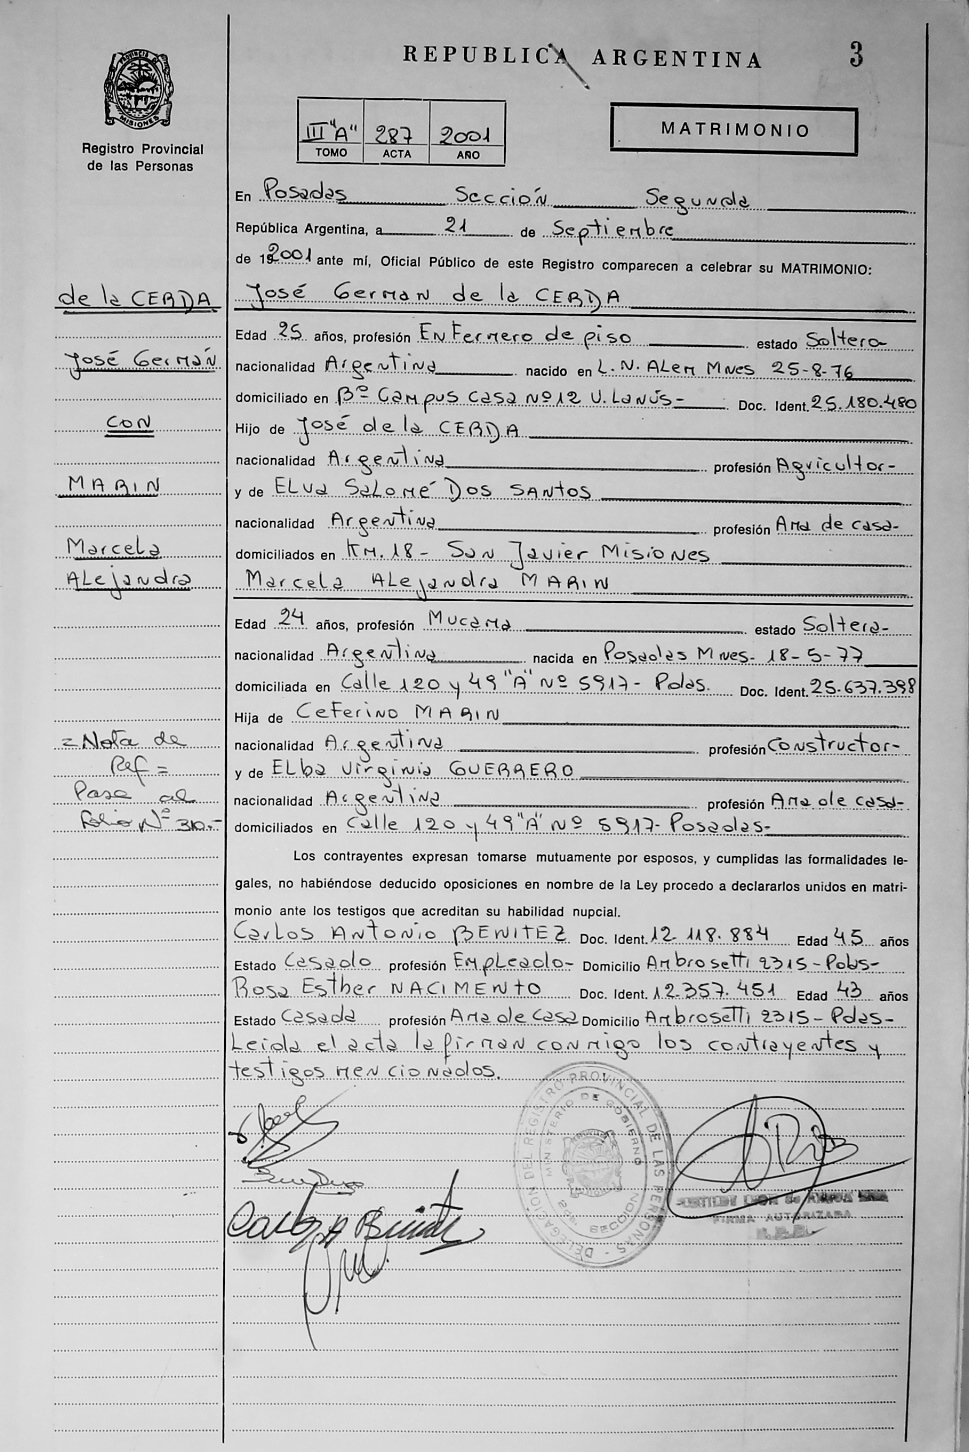 REPUBLICA ARGENTINA 3
PROVINCIA DE
MISIONES
Registro Provincial
de las Personas
III "A" 287 2001
TOMO ACTA AÑO
MATRIMONIO
En Posadas Sección Segunda
República Argentina, a 21 de Septiembre
de 192001 ante mí, Oficial Público de este Registro comparecen a celebrar su MATRIMONIO:
de la CERDA
José Germán
CON
MARIN
Marcela
ALejandra
= Nota de
Ref =
Pase al
folio Nº 310.-
José German de la CERDA
Edad 25 años, profesión Enfermero de piso estado Soltero-
nacionalidad Argentina nacido en L.N. ALem Mnes 25-8-76
domiciliado en Bº Campus Casa Nº 12 U. Lanús- Doc. Ident. 25.180.480
Hijo de José de la CERDA
nacionalidad Argentina profesión Agricultor-
y de ELva SaLomé Dos Santos
nacionalidad Argentina profesión Ama de casa-
domiciliados en Km. 18 - San Javier Misiones
Marcela ALejandra MARIN
Edad 24 años, profesión Mucama estado Soltera-
nacionalidad Argentina nacida en Posadas Mnes- 18-5-77
domiciliada en Calle 120 y 49 "A" Nº 5917- Pdas. Doc. Ident. 25.637.398
Hija de Ceferino MARIN
nacionalidad Argentina profesión Constructor-
y de ELba Virginia GUERRERO
nacionalidad Argentina profesión Ama de casa-
domiciliados en Calle 120 y 49 "A" Nº 5917- Posadas-
Los contrayentes expresan tomarse mutuamente por esposos, y cumplidas las formalidades le-
gales, no habiéndose deducido oposiciones en nombre de la Ley procedo a declararlos unidos en matri-
monio ante los testigos que acreditan su habilidad nupcial.
CarLos Antonio BENITEZ Doc. Ident. 12.118.884 Edad 45 años
Estado Casado profesión EmpLeado- Domicilio Ambrosetti 2315-Pdas-
Rosa Esther NACIMENTO Doc. Ident. 12.357.451 Edad 43 años
Estado Casada profesión Ama de Casa Domicilio Ambrosetti 2315-Pdas-
Leida el acta la firman conmigo los contrayentes y
testigos mencionados.
DELEGACIÓN DEL REGISTRO PROVINCIAL DE LAS PERSONAS
MINISTERIO DE GOBIERNO
2da. SECCIÓN
Carlos A Benitez
FIRMA AUTORIZADA